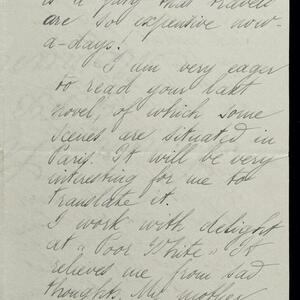 is a pity that travels
are so expensive now-
a-days!
I am very eager
to read your last
novel, of which some
scenes are situated in
Paris. It will be very
interesting for me to
translate it.
I work with delight
at "Poor White" It
relieves me from sad
thoughts. My mother